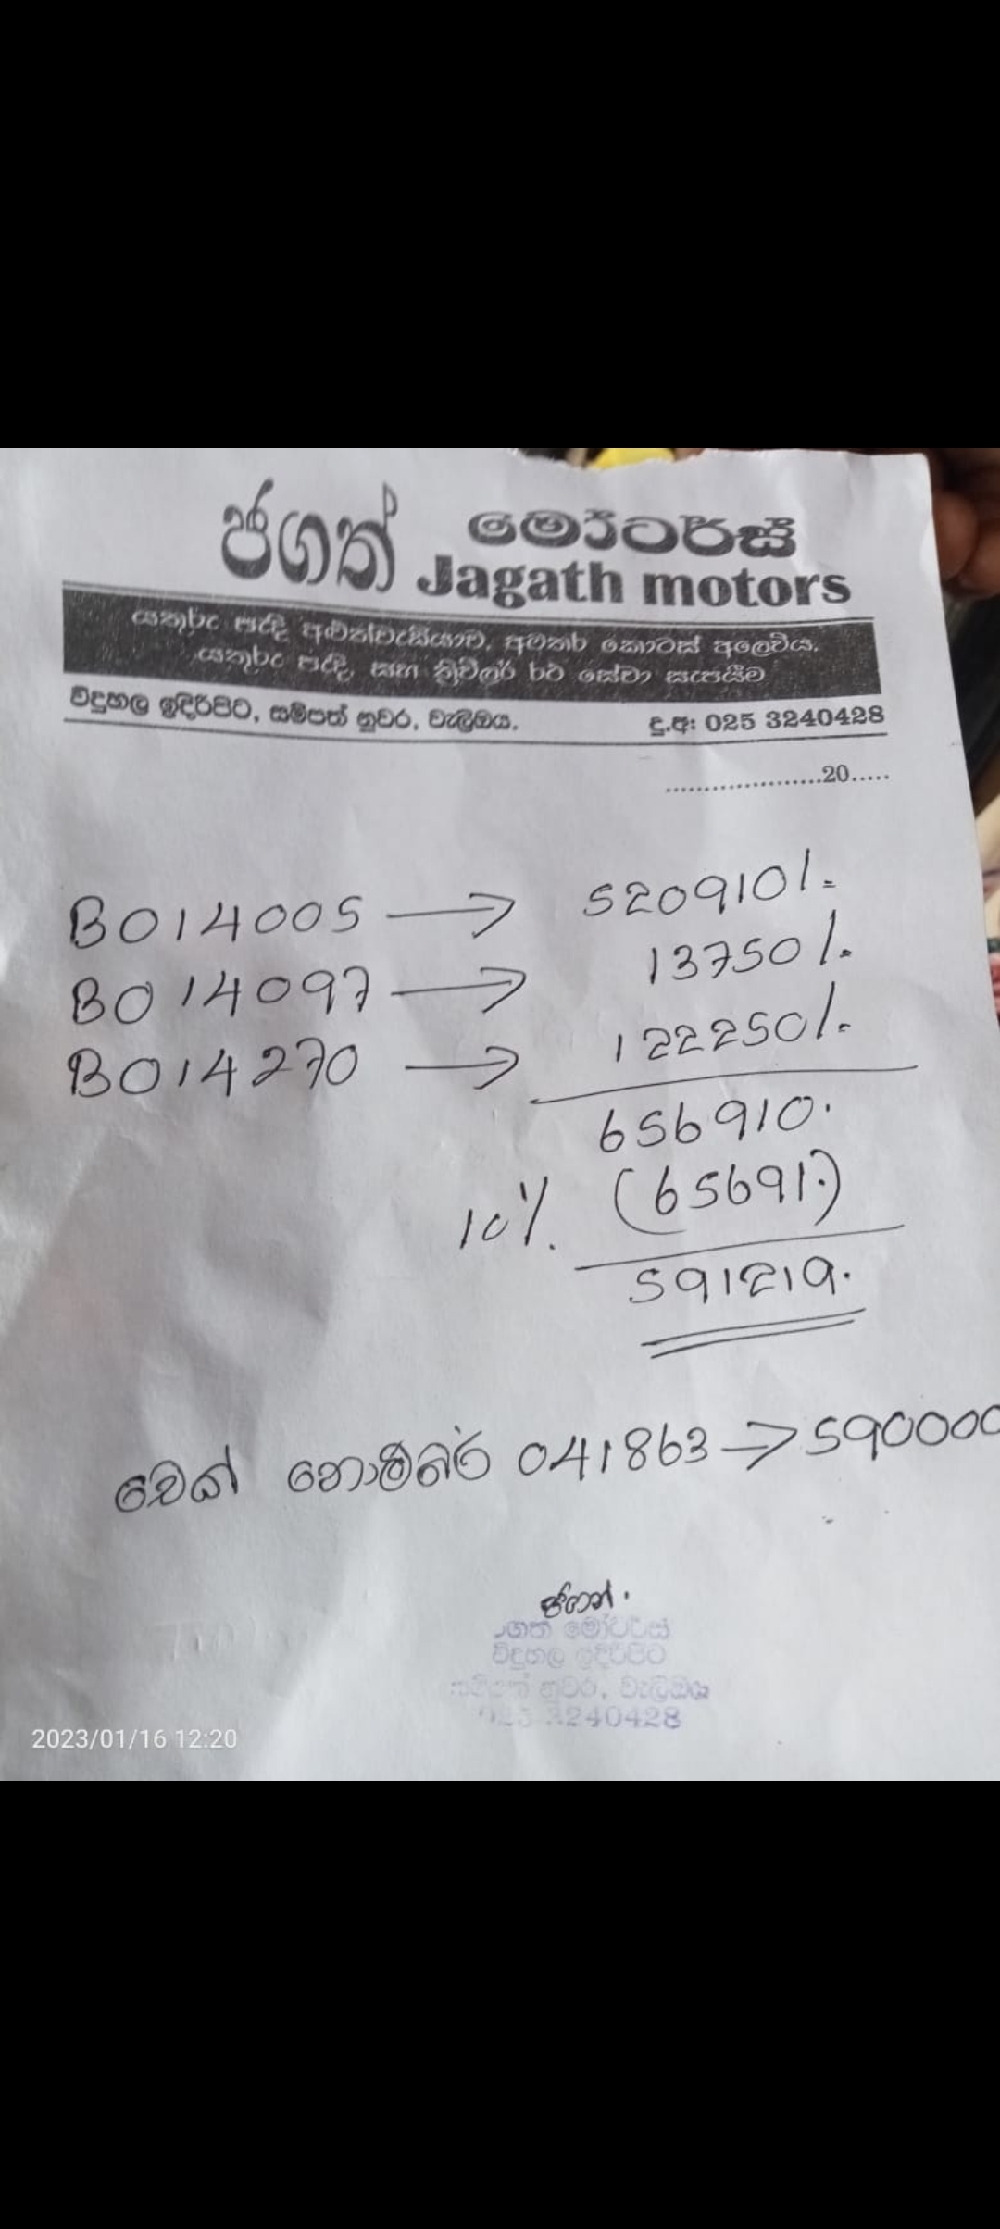 ජගත් මෝටර්ස්
Jagath motors
යතුරු පැදි අළුත්වැඩියාව, අමතර කොටස් අලෙවිය.
යතුරු පැදි, සහ ත්‍රිවිල්ර් රථ සේවා සැපයීම
විදුහල ඉදිරිපිට, සම්පත් නුවර, වැලිඔය.
දු.අ: 025 3240428
......................20.....
B014005 → 520910/=
B014097 → 13750/=
B014270 → 122250/=
656910.
10% (65691.)
591219.
චෙක් නොම්බර් 041863 → 590000
ජගත්.
ජගත් මෝටර්ස්
විදුහල ඉදිරිපිට
සම්පත් නුවර, වැලිඔය
025 3240428
2023/01/16 12:20